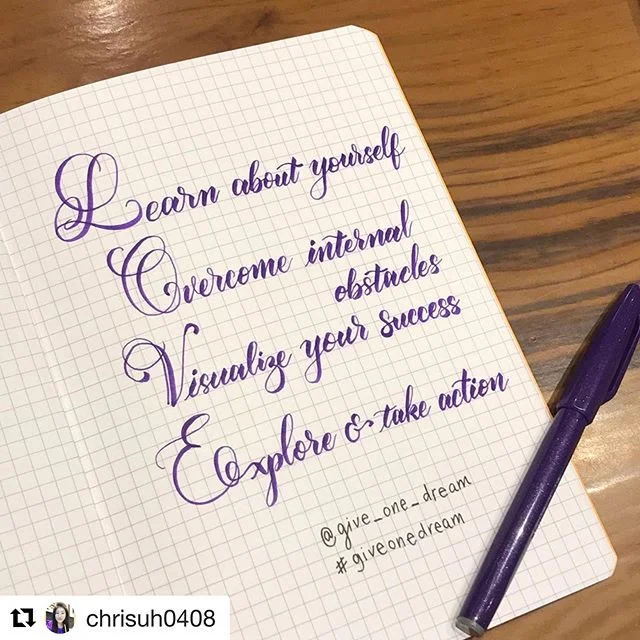 Learn about yourself
Overcome internal
obstacles
Visualize your success
Explore & take action
@give_one_dream
#giveonedream
chrisuh0408